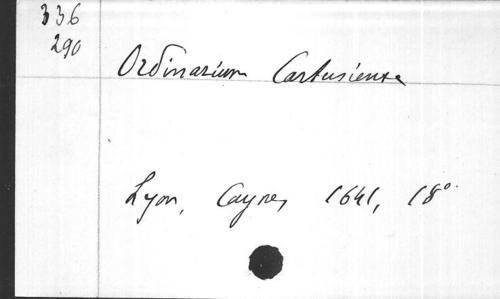 336
290
Ordinarium Cartusiense
Lyon, Cayne, 1641, 18°